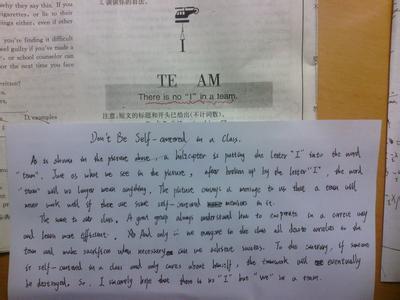 why they say this. If you
cigarettes, or lie to their
tings either, even if other
you're finding it difficult
eel guilty if you've made a
or school counselor can
or the next time you face
D. examples
2.谈谈你的看法。
I
TE AM
There is no "I" in a team.
注意:短文的标题和开头已给出(不计词数)。
Don't Be Self-centered in a Class.
As is shown in the picture above, a helicopter is putting the letter "I" into the word
"team". Just as what we see in the picture, after broken up by the letter "I", the word
"team" will no longer mean anything. The picture conveys a message to us that a team will
never work well if there are some self-centered members in it.
The same to our class. A great group always understand how to cooperate in a correct way
and learn more efficient. And only if we everyone in the class all devote ourselves to the
team and make sacrifices when necessary can we achieve success. To the contrary, if someone
is self-centered in a class and only cares about himself, the teamwork will eventually
be destroyed. So, I sincerely hope that there is no "I" but "we" in a team.